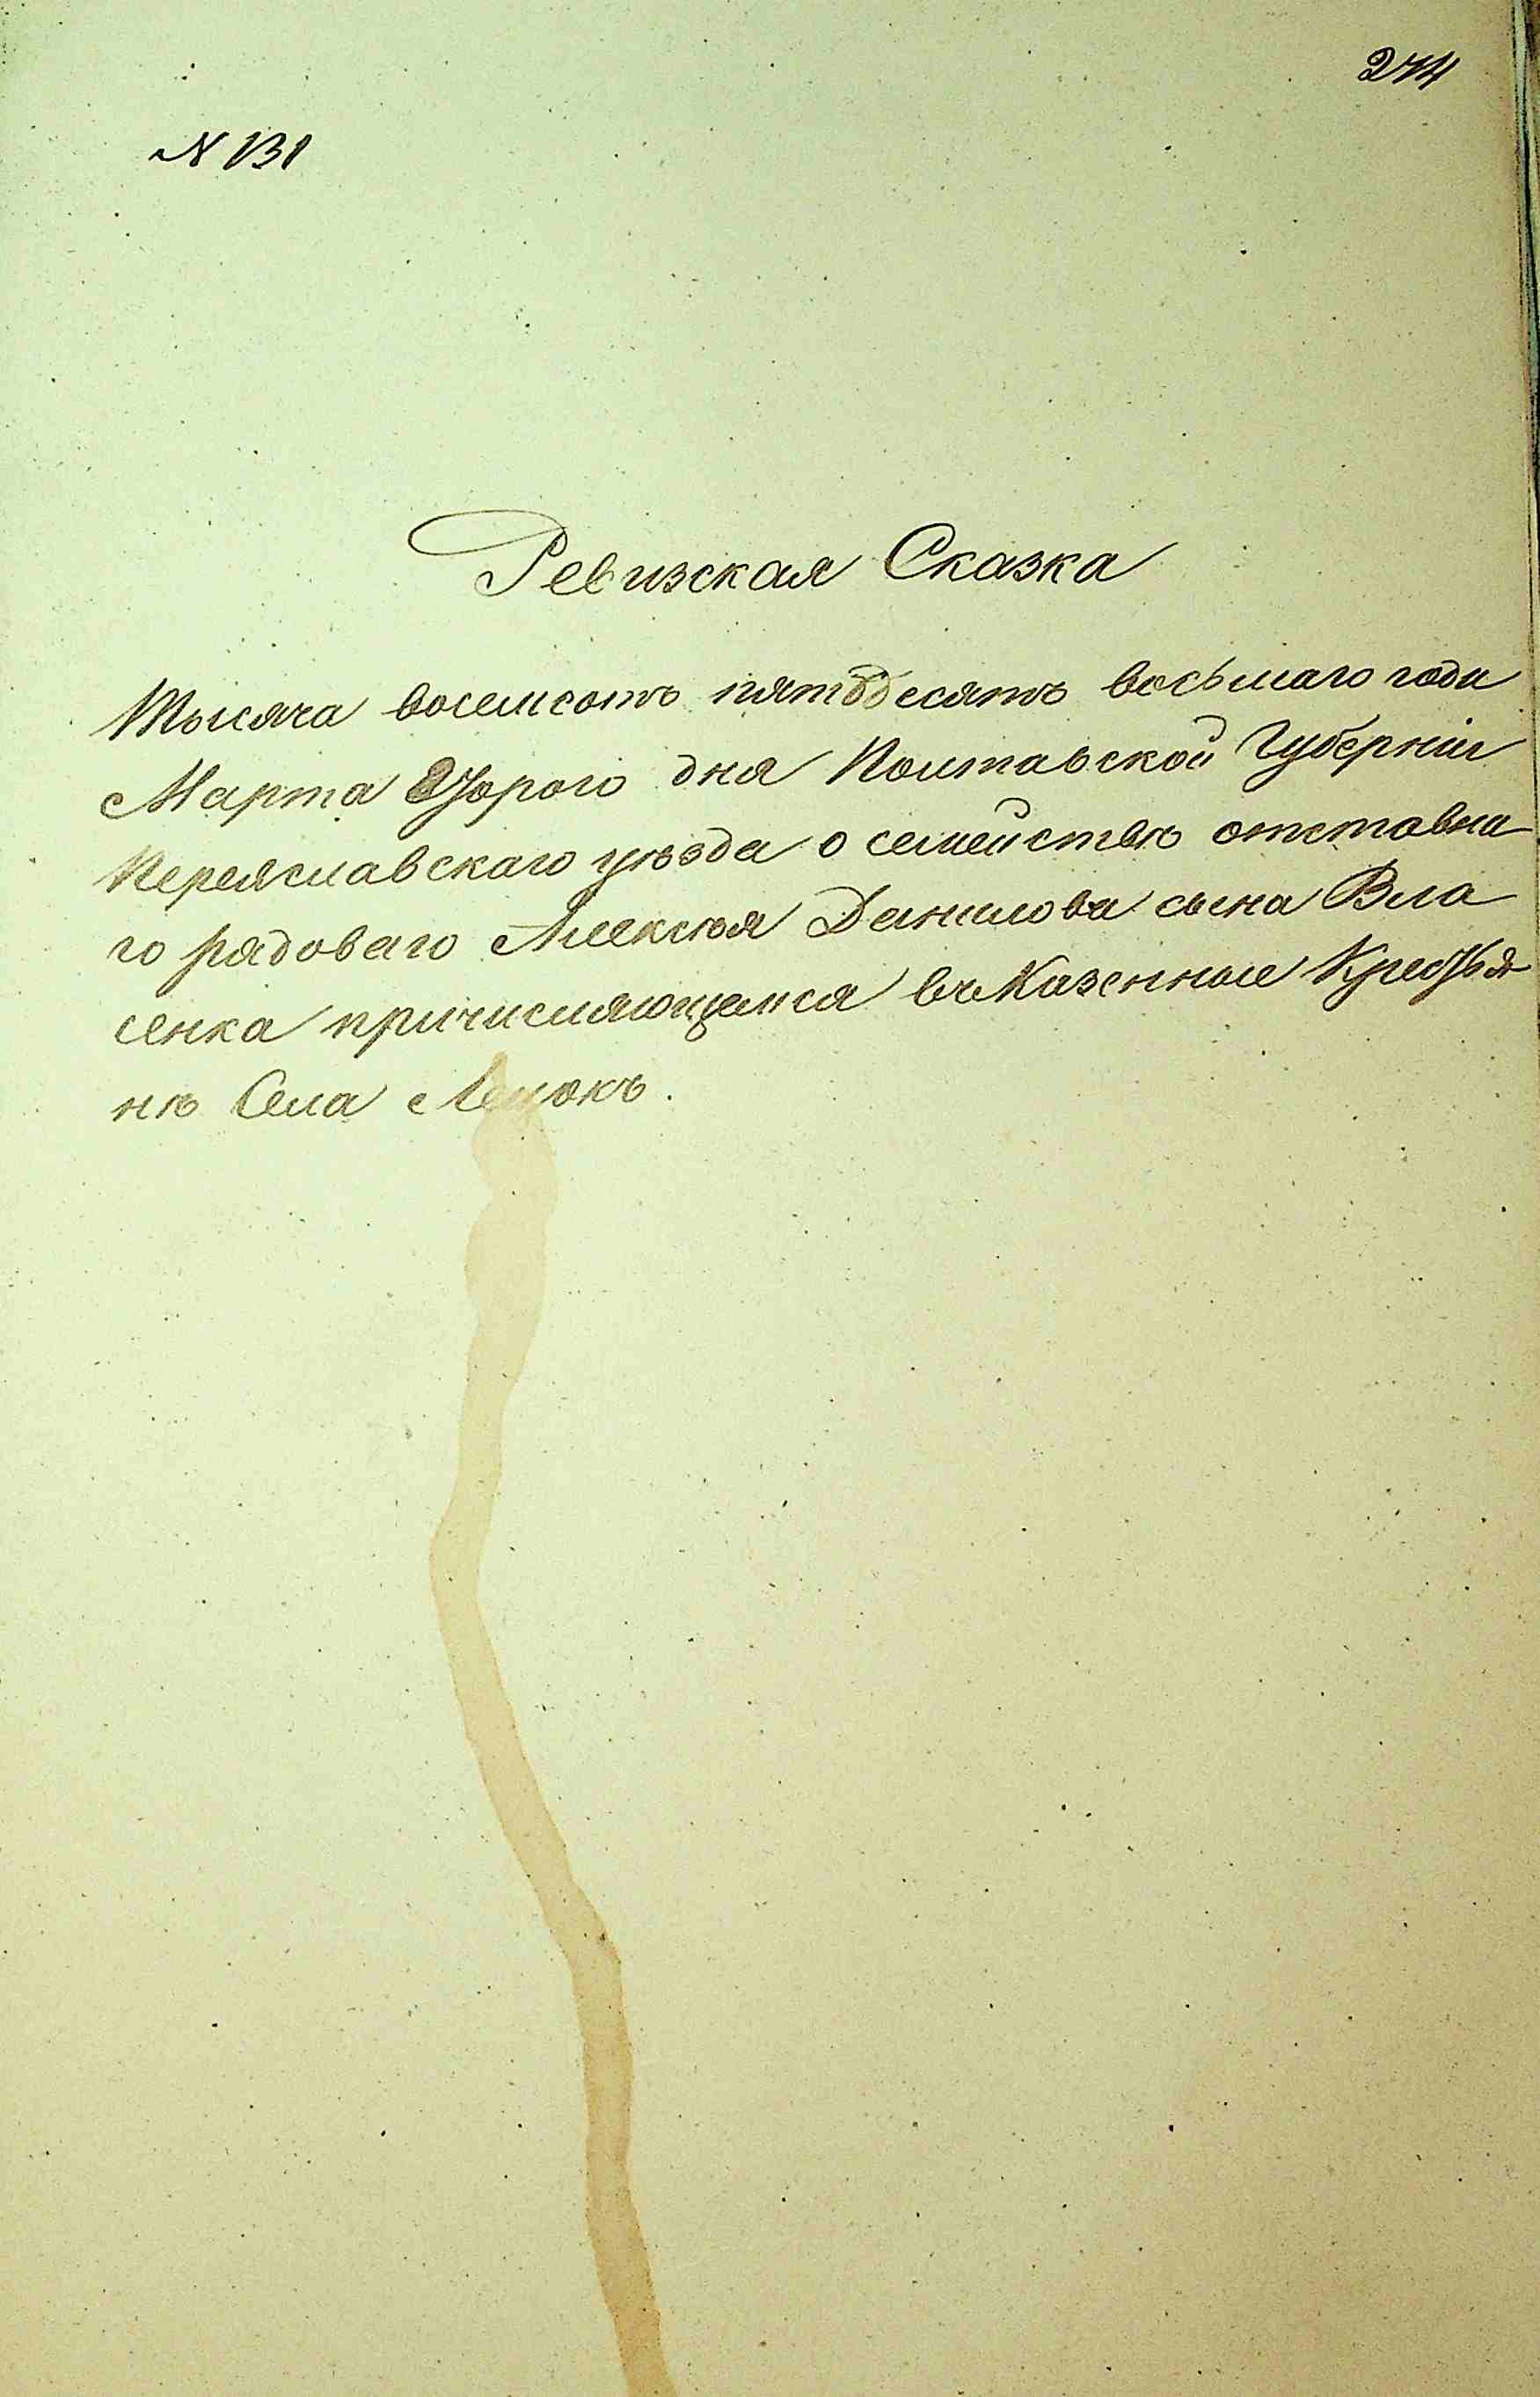 274
N 131
Ревизская Сказка
Тысяча восемсотъ пятьдесятъ восьмаго года
Марта Втораго дня Полтавской Губерніи
Переяславскаго уѣзда о семействѣ отставна
го рядоваго Алексѣя Данилова сына Вла
сенка причисляющемся въ Казенные Крестья
нѣ Села